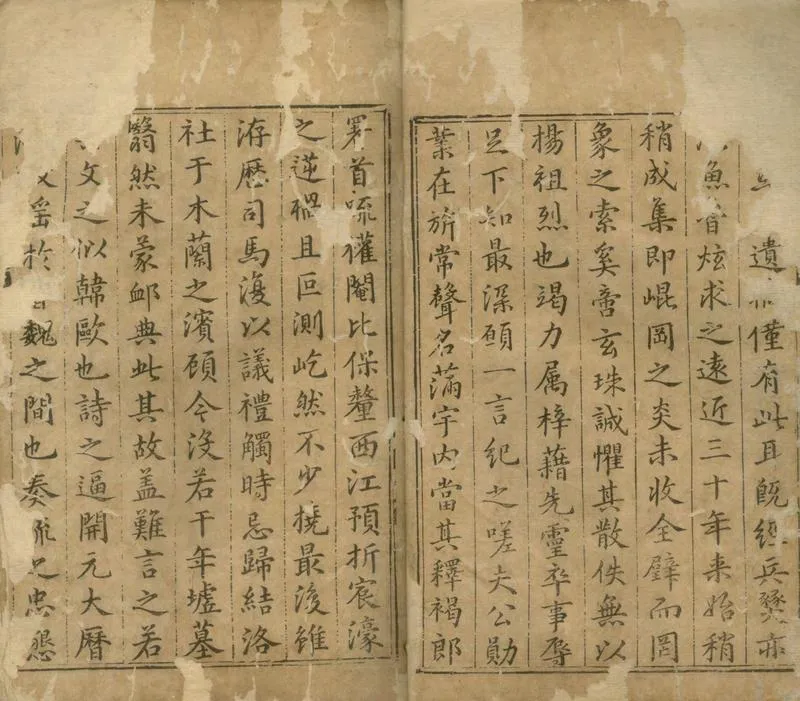 遺僅有此且既經兵燹亦
魚音炫求之遠近三十年来始稍
稍成集即崐岡之炎未收全璧而罔
象之索奚啻玄珠誠懼其散佚無以
楊祖烈也竭力属梓藉先靈卒事辱
足下知最深願一言紀之嗟夫公勳
業在旂常聲名滿宇内當其釋褐郎
署首疏權閹比保釐西江預折宸濠
之逆禍且叵測屹然不少撓最後雖
洊歷司馬復以議禮觸時忌歸結洛
社于木蘭之濱顧今没若干年墟墓
翳然未蒙卹典此其故盖難言之若
文之似韓歐也詩之逼開元大曆
於魏之間也奏疏之忠懇